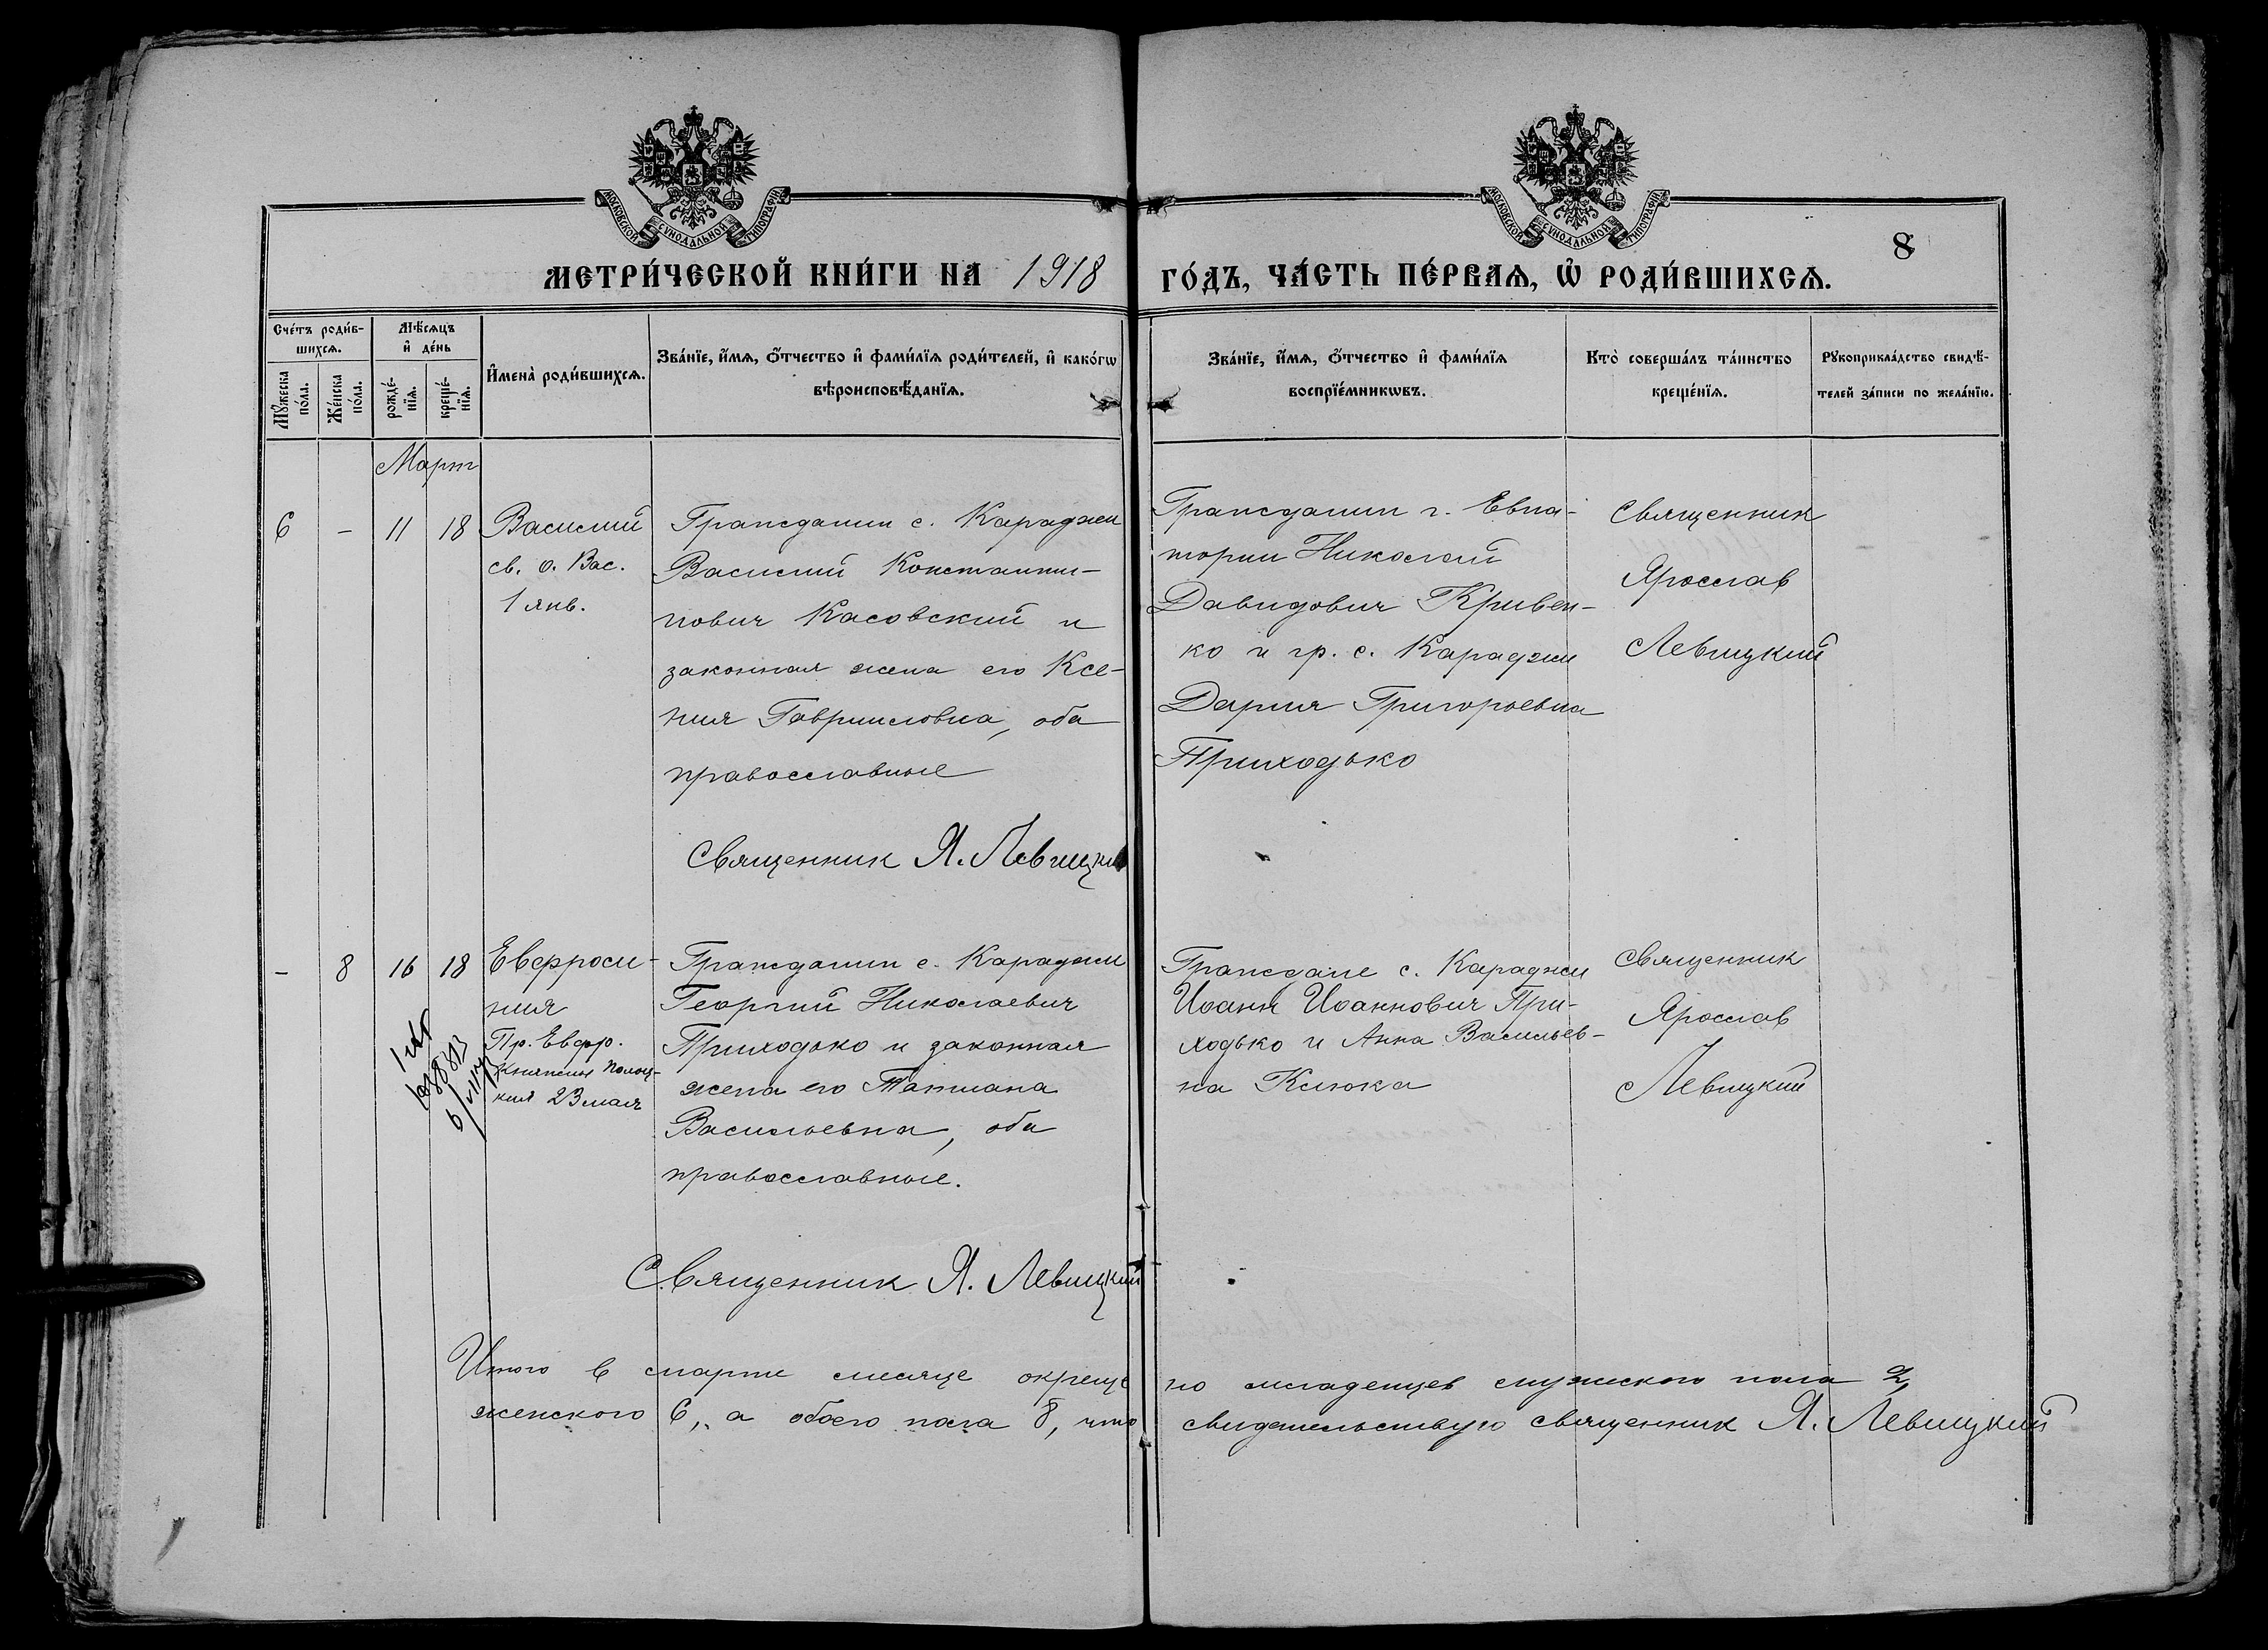 МОСКОВСКОЙ СѴНОДАЛЬНОЙ ТИПОГРАФІИ
МОСКОВСКОЙ СѴНОДАЛЬНОЙ ТИПОГРАФІИ
8
МЕТРИ́ЧЕСКОЙ КНИ́ГИ НА 1918 ГО́ДЪ, ЧА́СТЬ ПЕ́РВАѦ, Ѡ҆ РОДИ́ВШИХСѦ.
Сче́тъ роди́в-
шихсѧ.
Мꙋ́жеска
по́ла.
Же́нска
по́ла.
Мѣ́сѧцъ
и҆ де́нь
рожде́-
нїѧ.
креще́-
нїѧ.
И҆мена̀ роди́вшихсѧ.
Зва́нїе, и҆́мѧ, ѻ҆́тчество и҆ фами́лїѧ роди́телей, и҆ како́гѡ
вѣроисповѣ́данїѧ.
Зва́нїе, и҆́мѧ, ѻ҆́тчество и҆ фами́лїѧ
воспрїе́мникѡвъ.
Кто̀ соверша́лъ та́инство
креще́нїѧ.
Рꙋкоприкла́дство свидѣ́-
телей за́писи по жела́нїю.
Март
6 - 11 18
Василий
св. о. Вас.
1 янв.
Гражданин с. Караджи
Василий Константи-
нович Касовский и
законная жена его Ксе-
ния Гаврииловна, оба
православные
Священник Я. Левицкий
Гражданин г. Евпа-
тории Николай
Давидович Кривен-
ко и гр. с. Караджи
Дария Григорьевна
Приходько
Священник
Ярослав
Левицкий
- 8 16 18
Евфроси-
ния
Пр. Евфр.
княжны Полоц-
кия 23 мая
Гражданин с. Караджи
Георгий Николаевич
Приходько и законная
жена его Татиана
Васильевна, оба
православные.
Священник Я. Левицкий
Граждане с. Караджи
Иоанн Иоаннович При-
ходько и Анна Васильев-
на Клюка
Священник
Ярослав
Левицкий
Итого в марте месяце окреще но младенцев мужеского пола 2,
женского 6, а обоего пола 8, что свидетельствую священник Я. Левицкий